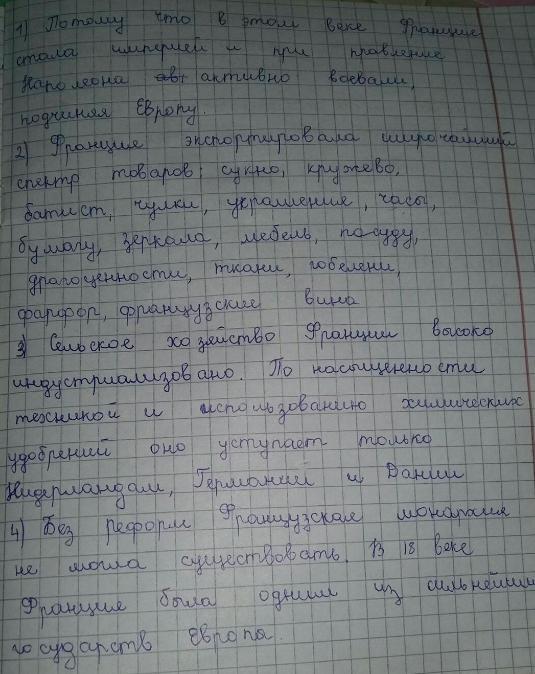 1) Потому что в этом веке Франция
стала империей и при правление
Наполеона активно воевали,
подчиняя Европу.
2) Франция экспортировала широчайший
спектр товаров: сукно, кружево,
батист, чулки, украшения, часы,
бумагу, зеркала, мебель, посуду,
драгоценности, ткани, гобелени,
фарфор, французские вина
3) Сельское хозяйство Франции высоко
индустриализовано. По насыщенности
техникой и использованию химических
удобрений оно уступает только
Нидерландам, Германий и Дании
4) Без реформ Французская монархия
не могла существовать. В 18 веке
Франция была одним из сильнейших
государств Европы.